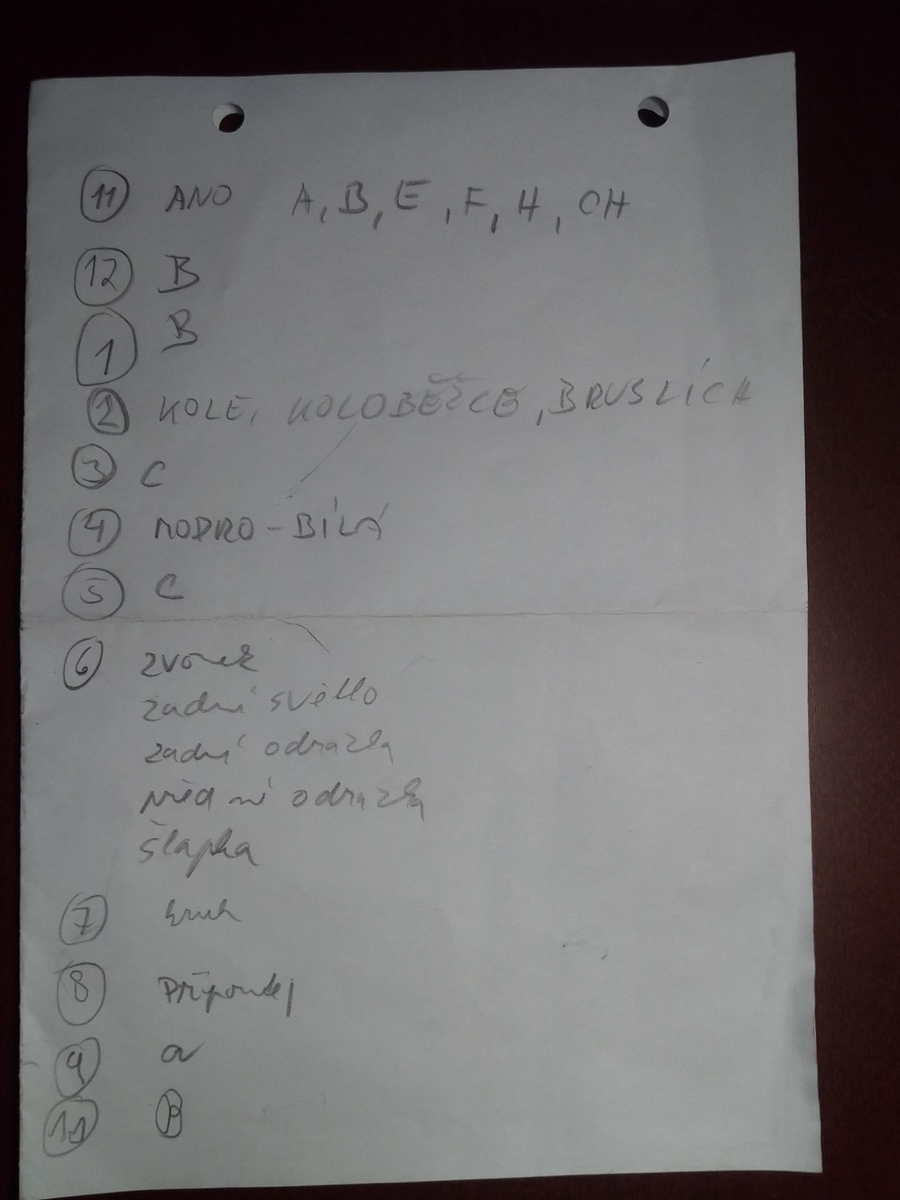 11 ANO A, B, E, F, H, CH
12 B
1 B
2 KOLE, KOLOBĚŽCE, BRUSLÍCH
3 C
4 MODRO-BÍLÁ
5 C
6 zvonek
zadní světlo
zadní odrazka
přední odrazka
šlapka
7 kruh
8
9 a
11 B